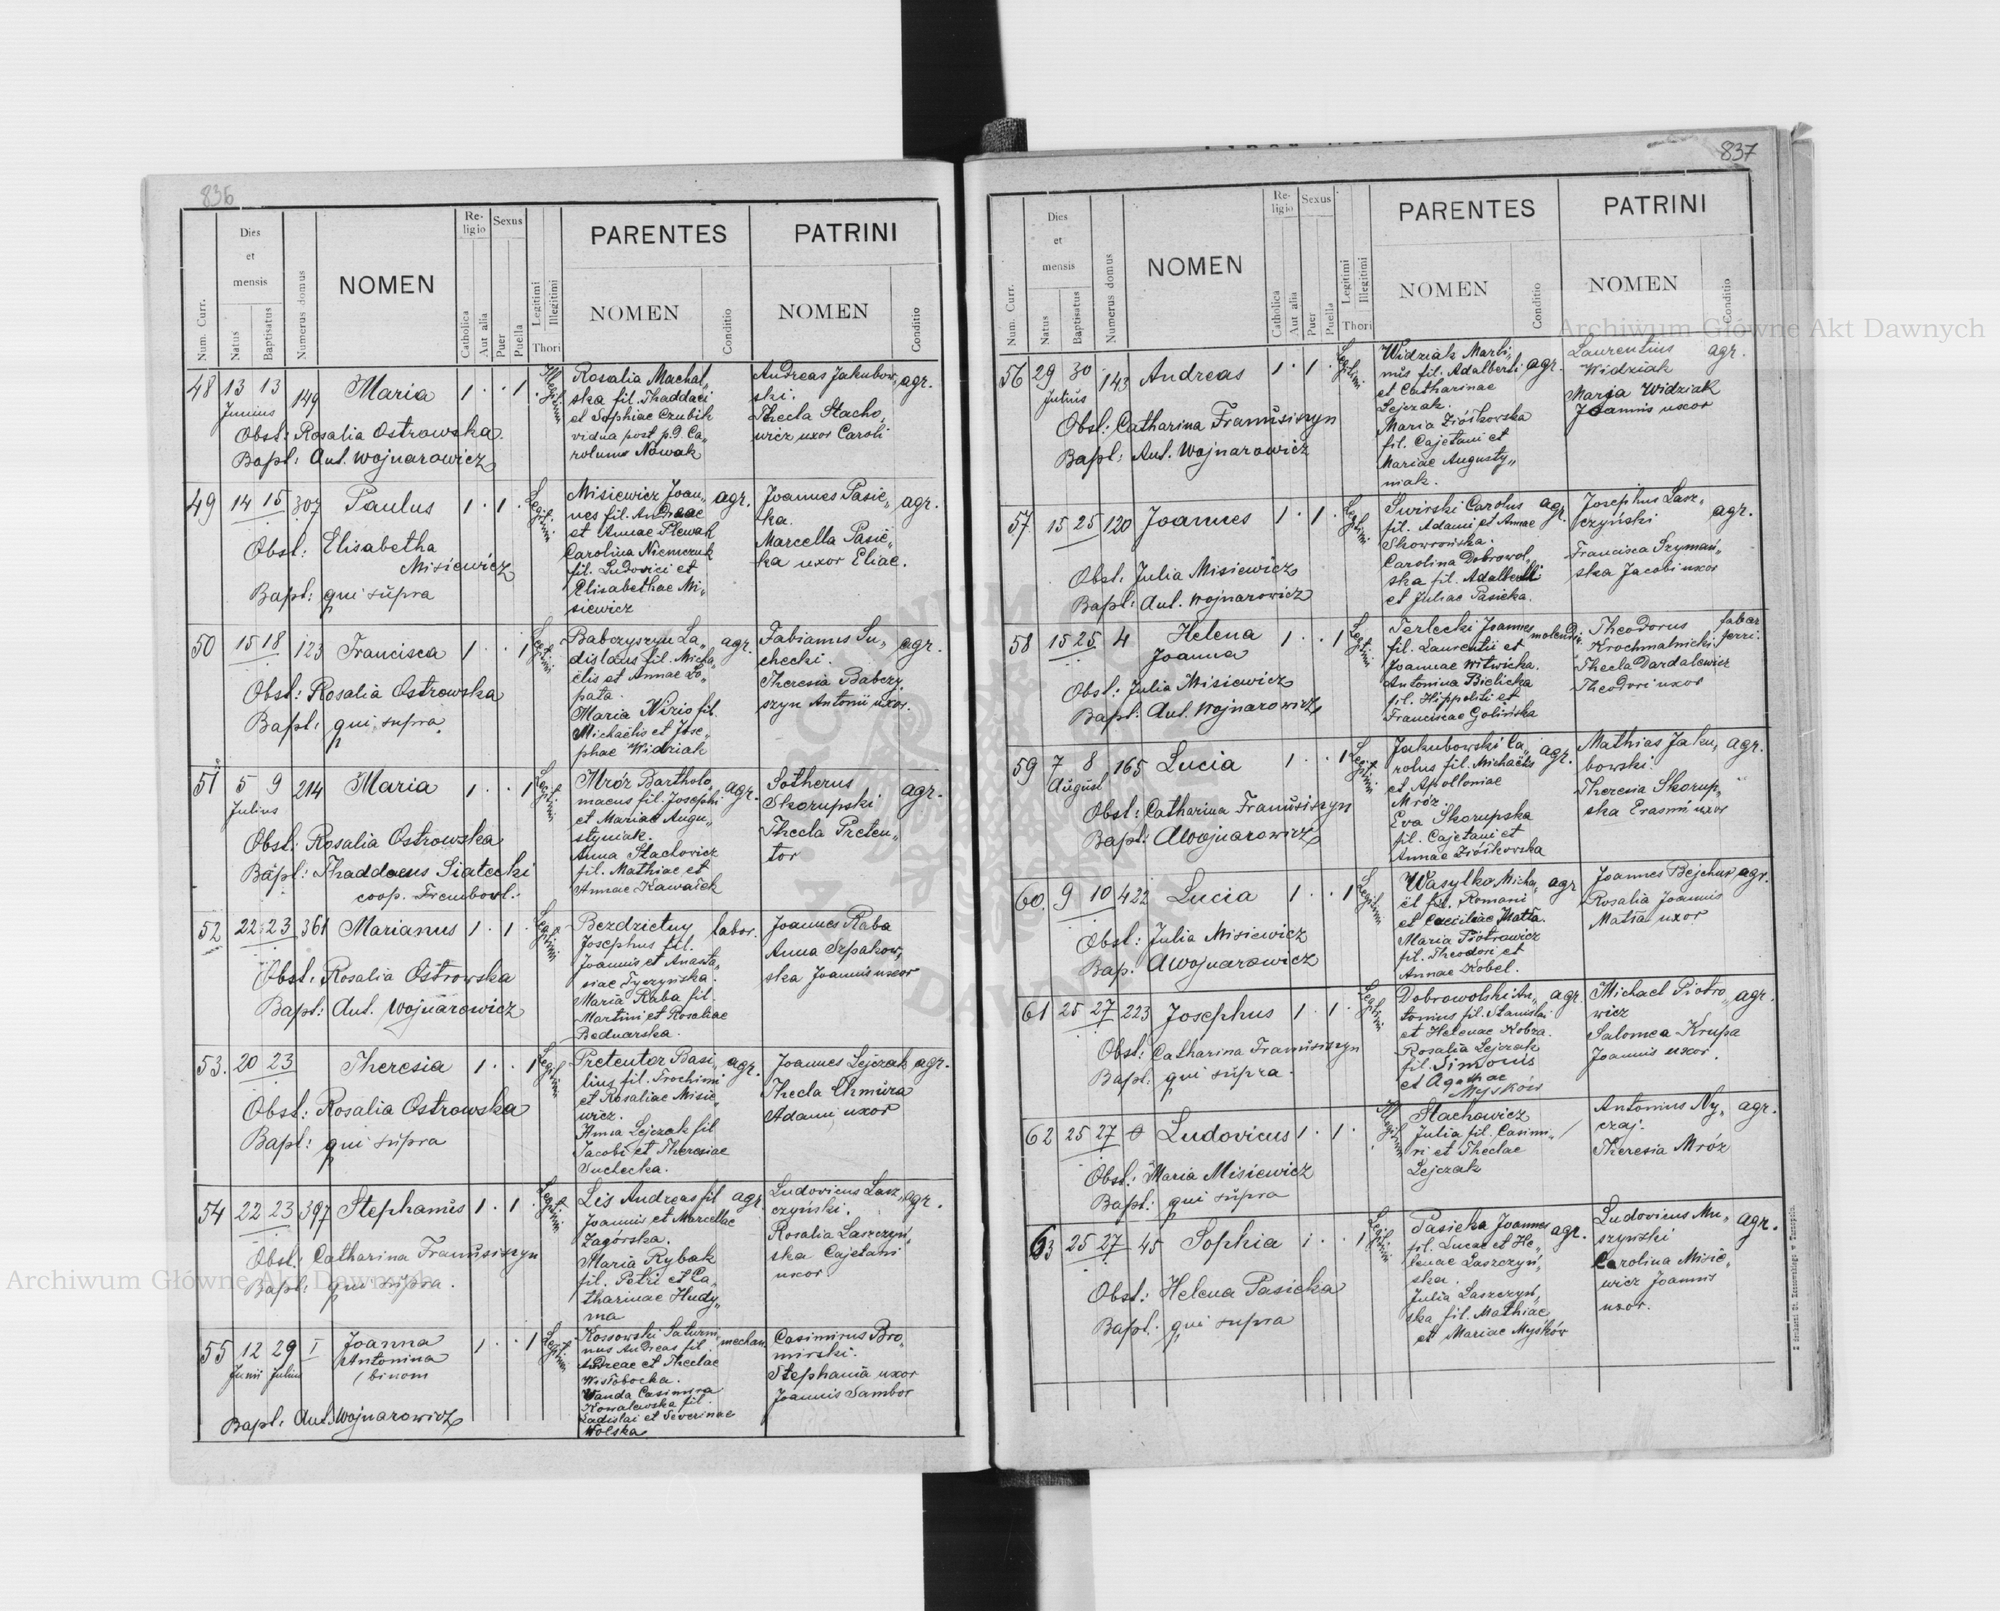 836
Num. Curr.
Dies et mensis
Natus
Baptisatus
Numerus domus
NOMEN
Religio
Catholica
Aut alia
Sexus
Puer
Puella
Legitimi
Illegitimi
Thori
PARENTES
NOMEN
Conditio
PATRINI
NOMEN
Conditio
48 13 13 149 Maria 1 · · 1 Illegitimi
Junius
Obst: Rosalia Ostrowska.
Bapt: Ant. Wojnarowicz
Rosalia Machal„
ska fil. Thaddaei
et Sophiae Czubik
vidua post p. d. Ca„
rolum Nowak
Andreas Jakubow„ agr.
ski.
Thecla Stacho„
wicz uxor Caroli
49 14 15 307 Paulus 1 · 1 · Legitimi
Obst: Elisabetha
Misiewicz
Bapt: qui supra
Misiewicz Joan„ agr.
nes fil. Andreae
et Annae Plewak
Carolina Niemczuk
fil. Ludovici et
Elisabethae Mi„
siewicz
Joannes Pasie„ agr.
ka.
Marcella Pasie„
ka uxor Eliae.
50 15 18 123 Francisca 1 · · 1 Legitimi
Obst: Rosalia Ostrowska
Bapt: qui supra
Babczyszyn La„ agr.
dislaus fil. Micha„
ëlis et Annae Ło„
pata.
Maria Nizio fil.
Michaëlis et Jose„
phae Widziak
Fabianus Su„ agr.
checki.
Theresia Babczy„
szyn Antonii uxor.
51 5 9 214 Maria 1 · · 1 Legitimi
Julius
Obst: Rosalia Ostrowska
Bapt: Thaddaeus Siatecki
coop. Trembowl.
Mróz Bartholo„ agr.
maeus fil. Josephi
et Mariae Augu„
styniak.
Anna Stachowicz
fil. Mathiae et
Annae Kawałek
Sotherus agr.
Skorupski
Thecla Preten„
tor
52 22 23 361 Marianus 1 · 1 · Legitimi
Obst: Rosalia Ostrowska
Bapt: Ant. Wojnarowicz
Bezdzietny labor.
Josephus fil.
Joannis et Anasta„
siae Tyczyńska.
Maria Raba fil.
Martini et Rosaliae
Bednarska.
Joannes Raba
Anna Szpakow„
ska Joannis uxor
53. 20 23 Theresia 1 · · 1 Legitimi
Obst: Rosalia Ostrowska
Bapt: qui supra
Pretentor Basi„ agr.
lius fil. Trochimi
et Rosaliae Misie„
wicz.
Anna Lejczak fil.
Jacobi et Theresiae
Suchecka.
Joannes Lejczak agr.
Thecla Chmura
Adami uxor
54 22 23 397 Stephanus 1 · 1 · Legitimi
Obst: Catharina Franusiszyn
Bapt: qui supra.
Lis Andreas fil. agr.
Joannis et Marcellae
Zagórska.
Maria Rybak
fil. Petri et Ca„
tharinae Hudy„
ma
Ludovicus Lasz„ agr.
czyński.
Rosalia Laszczyń„
ska Cajetani
uxor
55 12 29 I Joanna 1 · · 1 Legitimi
Junii Julius Antonina
binom
Bapt: Ant. Wojnarowicz
Kossowski Saturni„ mechan.
nus Andreas fil.
Andreae et Theclae
Wisłobocka.
Wanda Casimira
Kowalewska fil.
Ladislai et Severinae
Wolska
Casimirus Bro„
mirski.
Stephania uxor
Joannis Sambor
837
Num. Curr.
Dies et mensis
Natus
Baptisatus
Numerus domus
NOMEN
Religio
Catholica
Aut alia
Sexus
Puer
Puella
Legitimi
Illegitimi
Thori
PARENTES
NOMEN
Conditio
PATRINI
NOMEN
Conditio
56 29 30 143 Andreas 1 · 1 · Legitimi
Julius
Obst: Catharina Franusiszyn
Bapt: Ant. Wojnarowicz
Widziak Marti„
nus fil. Adalberti agr.
et Catharinae
Lejczak.
Maria Ziółkowska
fil. Cajetani et
Mariae Augusty„
niak.
Laurentius agr.
Widziak
Marja Widziak
Joannis uxor
57. 15 25 120 Joannes 1 · 1 · Legitimi
Obst: Julia Misiewicz
Bapt: Ant. Wojnarowicz
Swirski Carolus agr.
fil. Adami et Annae
Skowrońska.
Carolina Dobrowol„
ska fil. Adalberti
et Juliae Pasieka.
Josephus Lasz„ agr.
czyński
Francisca Szymań„
ska Jacobi uxor
58 15 25 4 Helena 1 · · 1 Legitimi
Joanna
Obst: Julia Misiewicz
Bapt: Ant. Wojnarowicz
Terlecki Joannes
fil. Laurentii et
Joannae Witwicka.
Antonina Bielicka
fil. Hippoliti et
Franciscae Golińska
Theodorus faber
Krochmalnicki ferri.
Thecla Dardalewicz
Theodori uxor
59 7 8 165 Lucia 1 · · 1 Legitimi
August
Obst: Catharina Franusiszyn
Bapt: AWojnarowicz
Jakubowski Ca„ agr.
rolus fil. Michaëlis
et Apolloniae
Mróz.
Eva Skorupska
fil. Cajetani et
Annae Ziółkowska
Mathias Jaku„ agr.
bowski.
Theresia Skorup„
ska Erasmi uxor
60. 9 10 422 Lucia 1 · · 1 Legitimi
Obst: Julia Misiewicz
Bap. AWojnarowicz
Wasylko Micha„ agr
ël fil. Romani
et Caeciliae Matla.
Maria Piotrowicz
fil. Theodori et
Annae Kobel.
Joannes Bejchuk agr.
Rosalia Joannis
Matła uxor
61 25 27 223 Josephus 1 · 1 · Legitimi
Obst: Catharina Franusiszyn
Bapt: qui supra.
Dobrowolski An„ agr.
tonius fil. Stanislai
et Helenae Kobza.
Rosalia Lejczak
fil. Simonis
et Agathae
Myśków
Michaël Piotro„ agr.
wicz
Salomea Krupa
Joannis uxor.
62 25 27 0 Ludovicus 1 · 1 · Illegitimi
Obst: Maria Misiewicz
Bapt: qui supra
Stachowicz
Julia fil. Casimi„
ri et Theclae
Lejczak
Antonius Ny„ agr.
czaj.
Theresia Mróz
63 25 27 45 Sophia 1 · · 1 Legitimi
Obst: Helena Pasieka
Bapt: qui supra
Pasieka Joannes agr.
fil. Lucae et He„
lenae Laszczyń„
ska.
Julia Laszczyń„
ska fil. Mathiae
et Mariae Myśków
Ludovicus Mu„ agr.
szyński
Carolina Misie„
wicz Joannis
uxor.
Archiwum Główne Akt Dawnych
Archiwum Główne Akt Dawnych